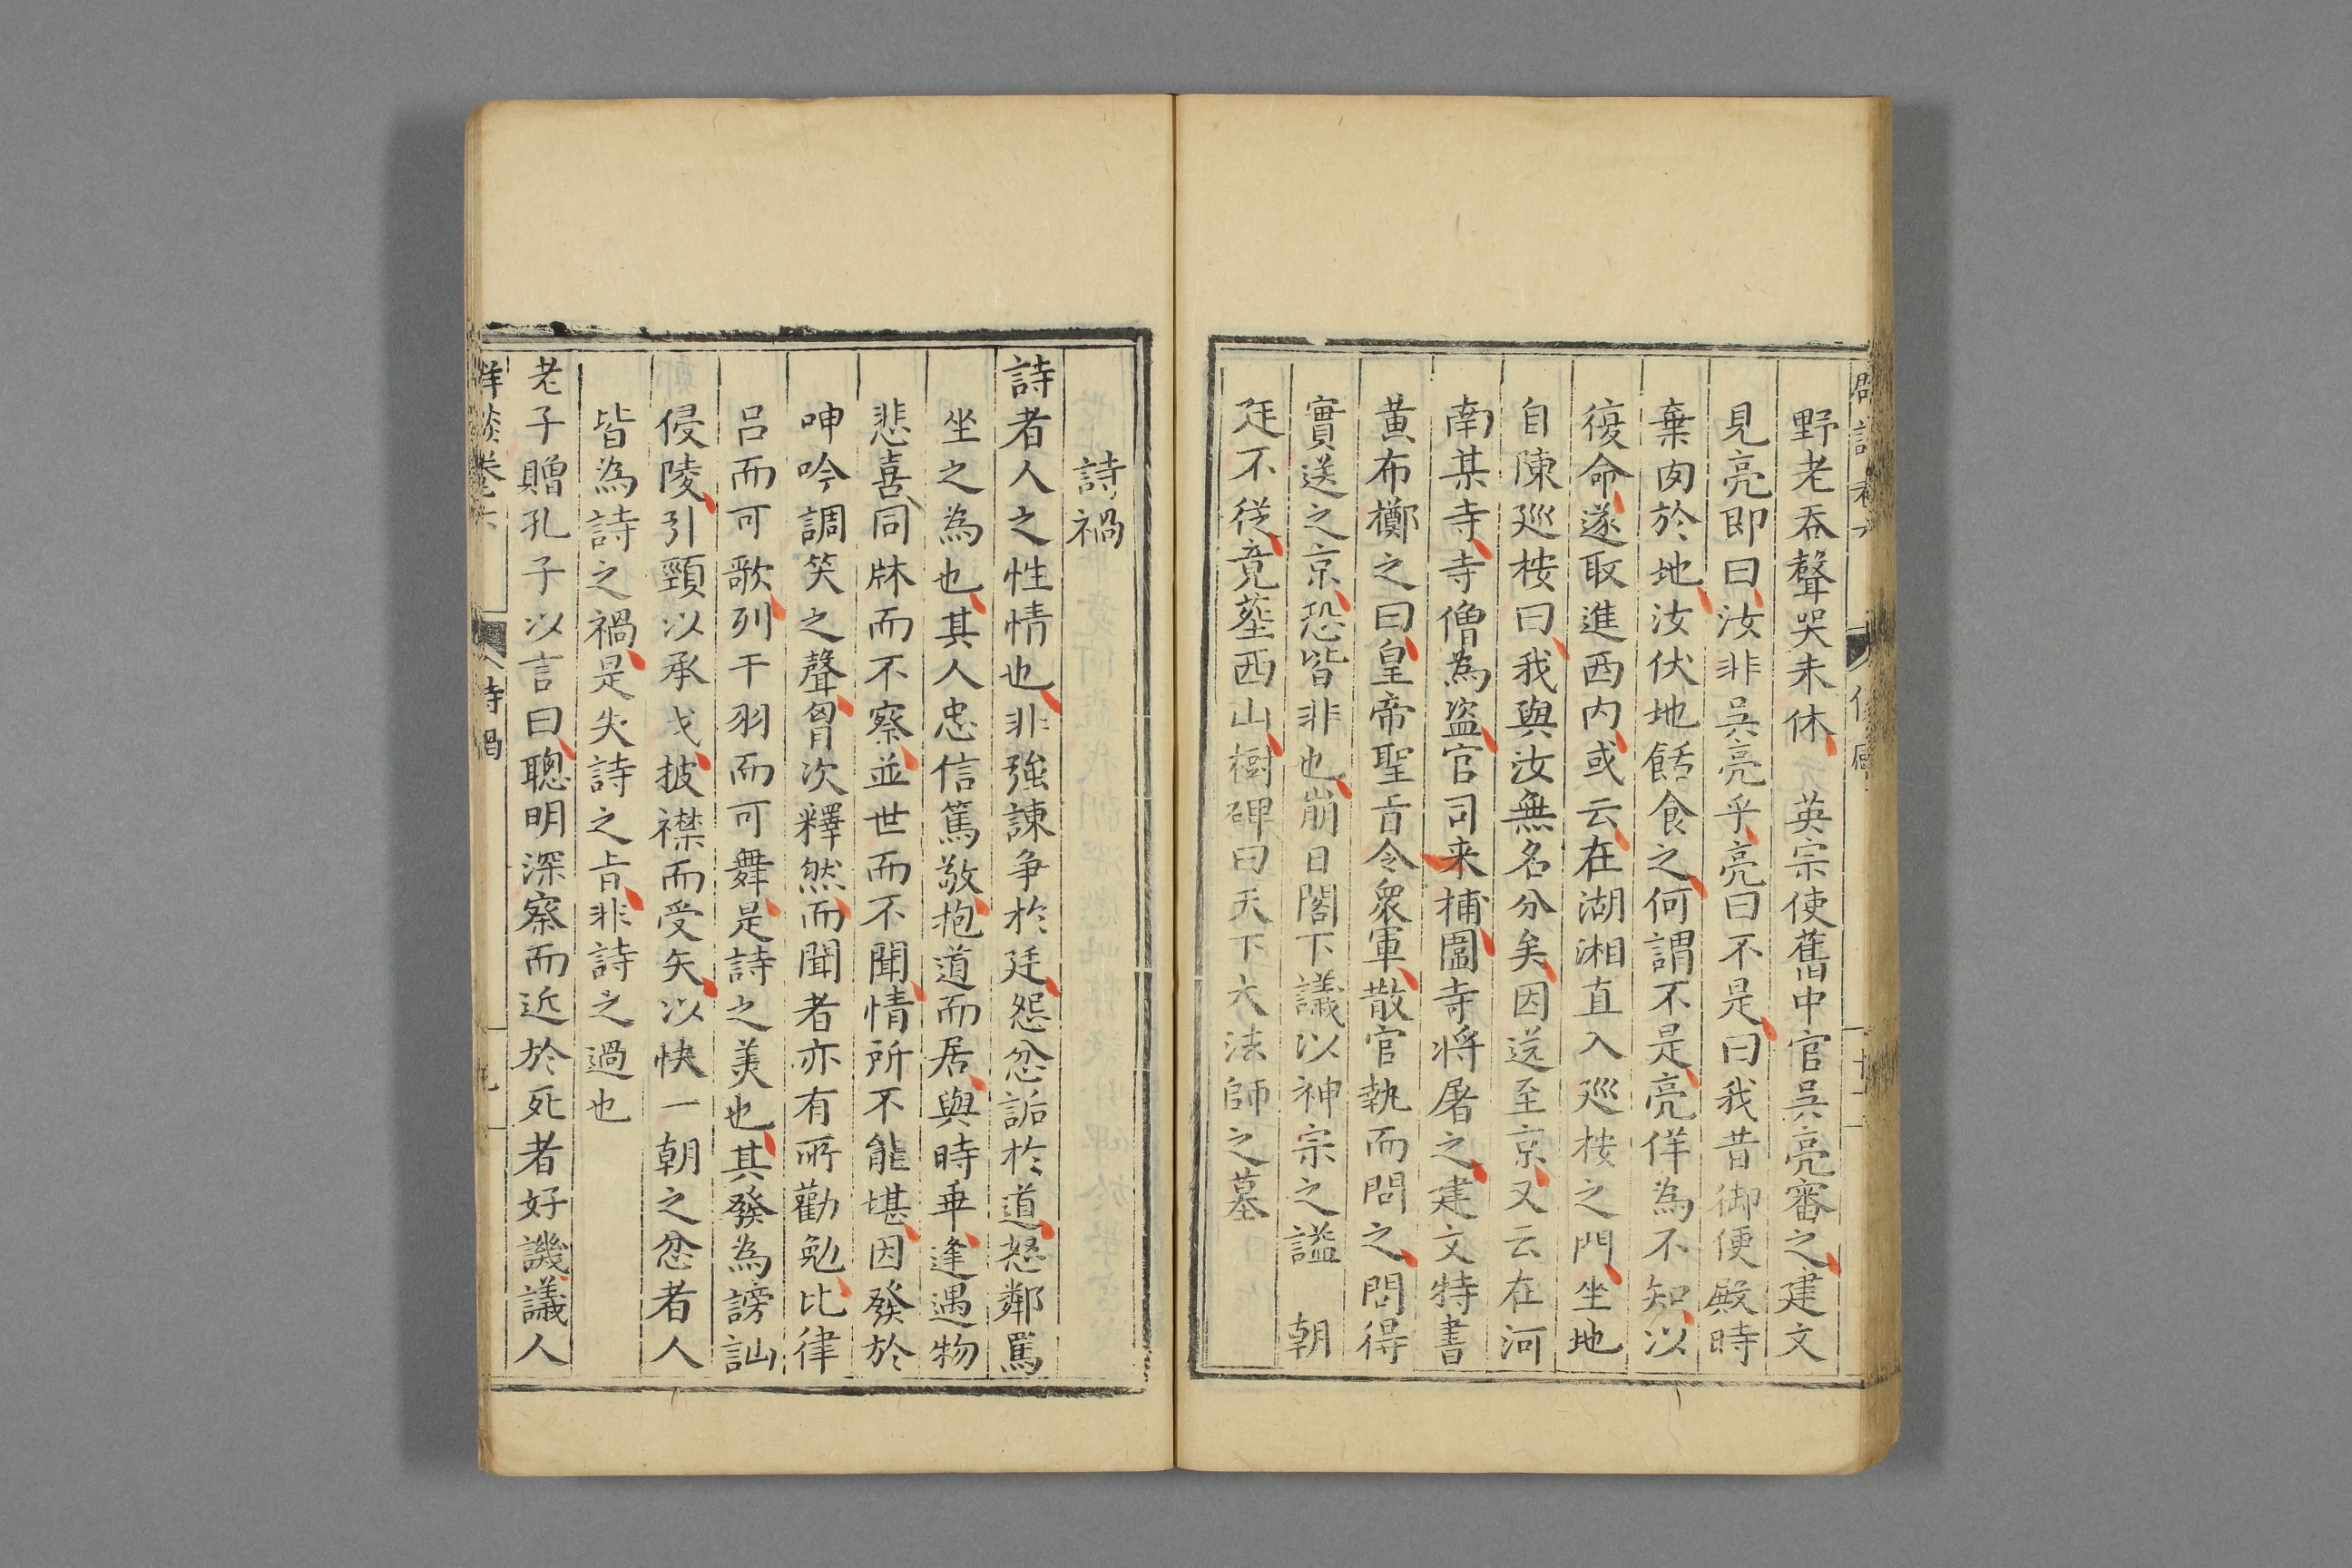 野老吞聲哭未休 英宗使舊中官吳亮審之建文
見亮即曰汝非吳亮乎亮曰不是曰我昔御便殿時
棄肉於地汝伏地餂食之何謂不是亮佯為不知以
復命遂取進西內或云在湖湘直入巡按之門坐地
自陳巡按曰我與汝無名分矣因送至京又云在河
南某寺寺僧為盜官司来捕圍寺將屠之建文特書
黃布擲之曰皇帝聖旨令衆軍散官執而問之問得
實送之京恐皆非也崩日閣下議以神宗之謚 朝
廷不從竟塟西山樹碑曰天下大法師之墓
詩禍
詩者人之性情也非強諫争於廷怨忿詬於道怒鄰罵
坐之為也其人忠信篤敬抱道而居與時乖逢遇物
悲喜同牀而不察並世而不聞情所不能堪因發於
呻吟調笑之聲胷次釋然而聞者亦有所勸勉比律
呂而可歌列干羽而可舞是詩之美也其發為謗訕
侵陵引頸以承戈披襟而受矢以快一朝之忿者人
皆為詩之禍是失詩之旨非詩之過也
老子贈孔子以言曰聰明深察而近於死者好譏議人